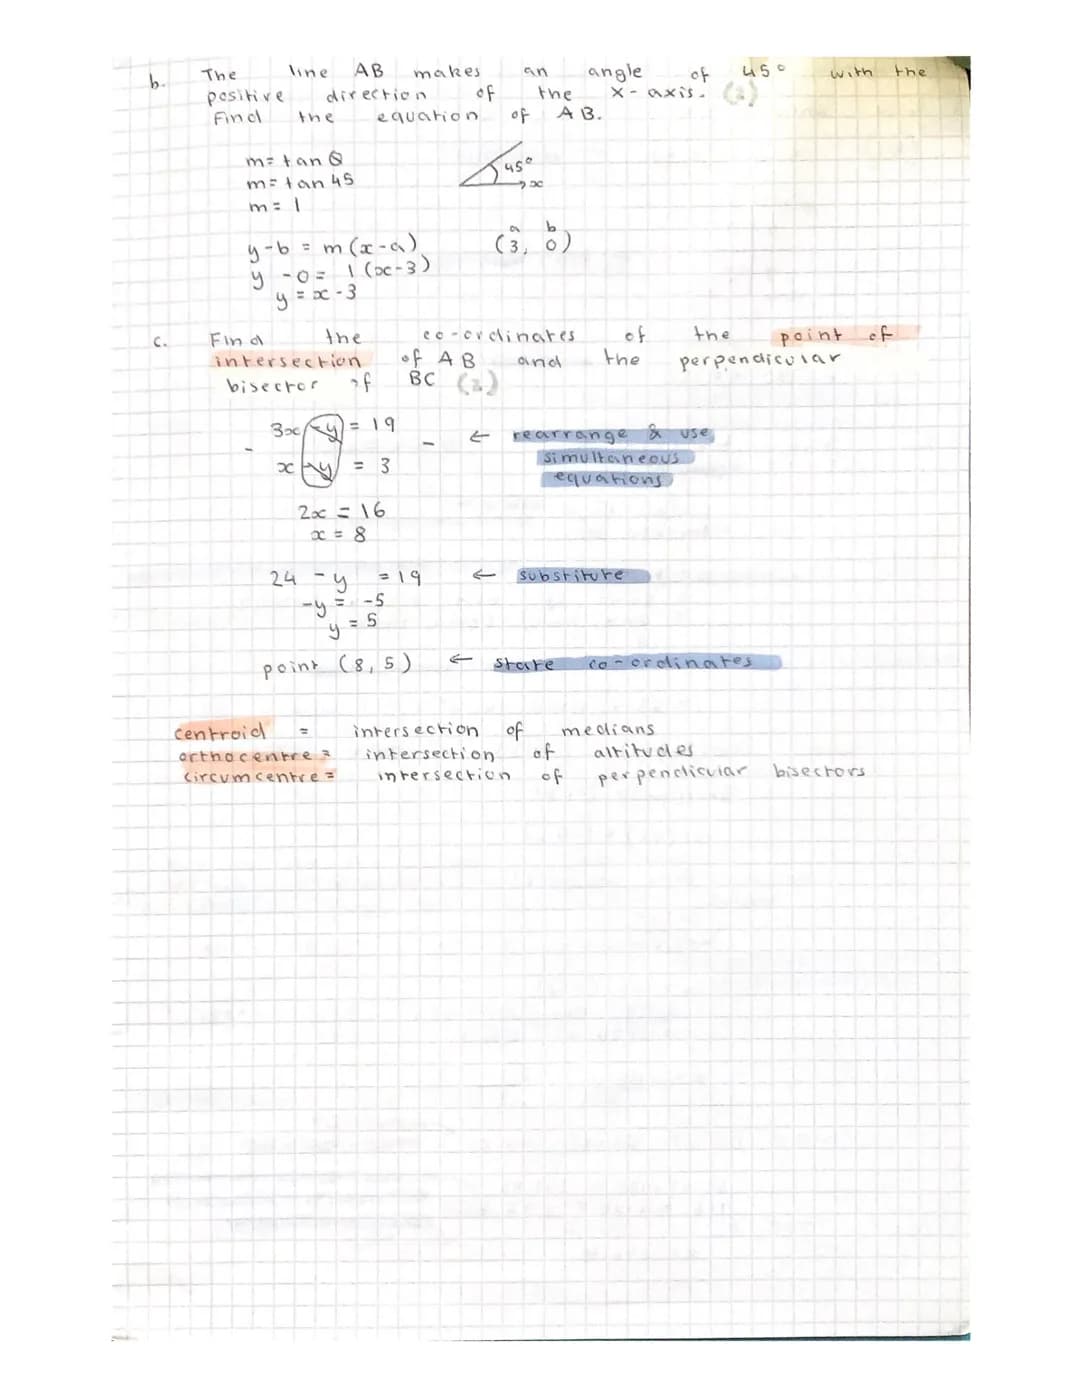 b. The line AB makes an angle of 45° with the
positive direction of the x-axis. (2)
Find the equation of AB.
m = tan θ
m = tan 45
m = 1
45°
x
y-b = m(x-a)
a b
(3, 0)
y - 0 = 1(x-3)
y = x - 3
c. Find the co-ordinates of the point of
intersection of AB and the perpendicular
bisector of BC (2)
3x - y = 19
- ← rearrange & use
- x - y = 3
simultaneous
equations
2x = 16
x = 8
24 - y = 19 ← substitute
-y = -5
y = 5
point (8, 5) ← state co-ordinates
centroid = intersection of medians
orthocentre = intersection of altitudes
circumcentre = intersection of perpendicular bisectors